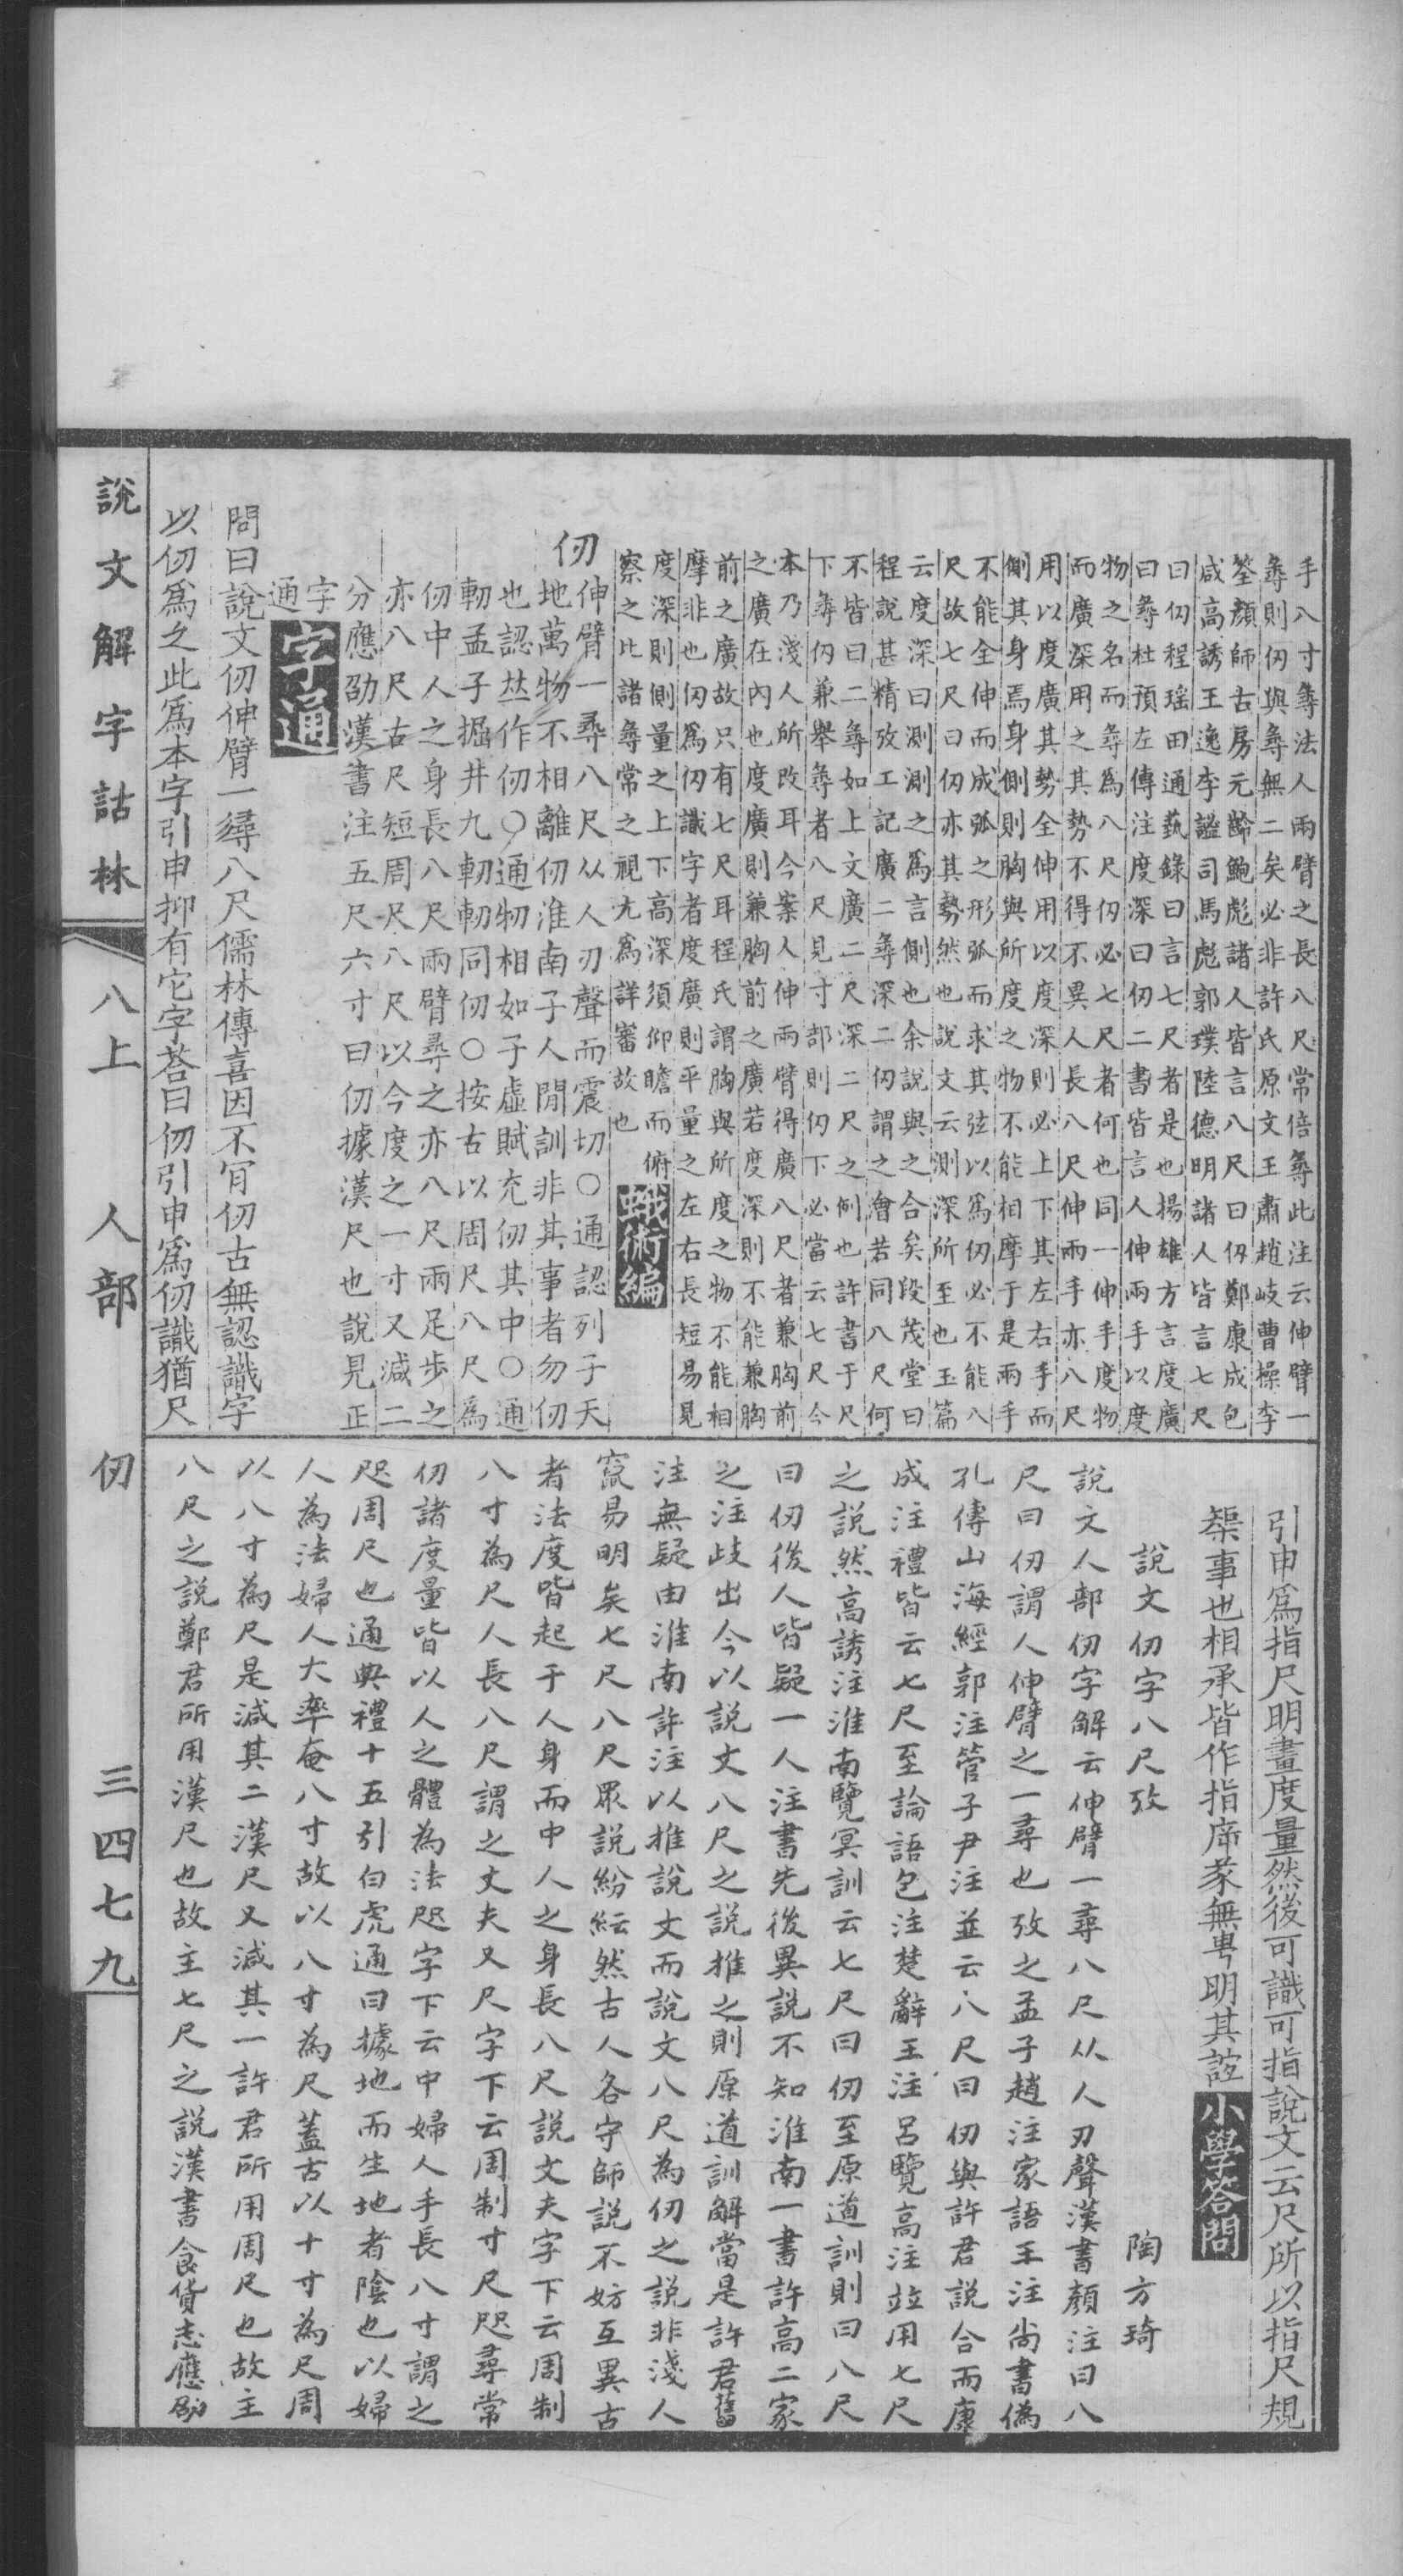 手八寸尋法人兩臂之長八尺常倍尋此注云伸臂一
尋則仞與尋無二矣必非許氏原文王肅趙岐曹操李
筌顏師古房元齡鮑彪諸人皆言八尺曰仞鄭康成包
咸高誘王逸李謐司馬彪郭璞陸德明諸人皆言七尺
曰仞程瑤田通藝錄曰言七尺者是也揚雄方言度廣
曰尋杜預左傳注度深曰仞二書皆言人伸兩手以度
物之名而尋為八尺仞必七尺者何也同一伸手度物
而廣深用之其勢不得不異人長八尺伸兩手亦八尺
用以度廣其勢全伸用以度深則必上下其左右手而
側其身焉身側則胸與所度之物不能相摩于是兩手
不能全伸而成弧之形弧而求其弦以為仞必不能八
尺故七尺曰仞亦其勢然也說文云測深所至也玉篇
云度深曰測測之為言側也余說與之合矣段茂堂曰
程說甚精攷工記廣二尋深二仞謂之澮若同八尺何
不皆曰二尋如上文廣二尺深二尺之例也許書于尺
下尋仞兼舉尋者八尺見寸部則仞下必當云七尺今
本乃淺人所改耳今案人伸兩臂得廣八尺者兼胸前
之廣在內也度廣則兼胸前之廣若度深則不能兼胸
前之廣故只有七尺耳程氏謂胸與所度之物不能相
摩非也仞為仞識字者度廣則平量之左右長短易見
度深則側量之上下高深須仰瞻而俯
察之比諸尋常之視尤為詳審故也
蛾術編
仞
伸臂一尋八尺从人刃聲而震切○通認列于天
地萬物不相離仞淮南子人閒訓非其事者勿仞
也認𠀤作仞○通牣相如子虛賦充仞其中○通
軔孟子掘井九軔軔同仞○按古以周尺八尺為
仞中人之身長八尺兩臂尋之亦八尺兩足步之
亦八尺古尺短周尺八尺以今度之一寸又減二
分應劭漢書注五尺六寸曰仞據漢尺也說見正
字
通
字通
問曰說文仞伸臂一尋八尺儒林傳喜因不肎仞古無認識字
以仞為之此為本字引申抑有它字荅曰仞引申為仞識猶尺
引申為指尺明畫度量然後可識可指說文云尺所以指尺規
榘事也相承皆作指庌篆無甹明其誼
小學答問
說文仞字八尺攷 陶方琦
說文人部仞字解云伸臂一尋八尺从人刃聲漢書顏注曰八
尺曰仞謂人伸臂之一尋也攷之孟子趙注家語王注尚書偽
孔傳山海經郭注管子尹注並云八尺曰仞與許君說合而康
成注禮皆云七尺至論語包注楚辭王注呂覽高注竝用七尺
之說然高誘注淮南覽冥訓云七尺曰仞至原道訓則曰八尺
曰仞後人皆疑一人注書先後異說不知淮南一書許高二家
之注歧出今以說文八尺之說推之則原道訓解當是許君舊
注無疑由淮南許注以推說文而說文八尺為仞之說非淺人
竄易明矣七尺八尺眾說紛紜然古人各守師說不妨互異古
者法度皆起于人身而中人之身長八尺說文夫字下云周制
八寸為尺人長八尺謂之丈夫又尺字下云周制寸尺咫尋常
仞諸度量皆以人之體為法咫字下云中婦人手長八寸謂之
咫周尺也通典禮十五引白虎通曰據地而生地者陰也以婦
人為法婦人大率奄八寸故以八寸為尺蓋古以十寸為尺周
以八寸為尺是減其二漢尺又減其一許君所用周尺也故主
八尺之說鄭君所用漢尺也故主七尺之說漢書食貨志應劭
說文解字詁林 八上 人部 仞 三四七九